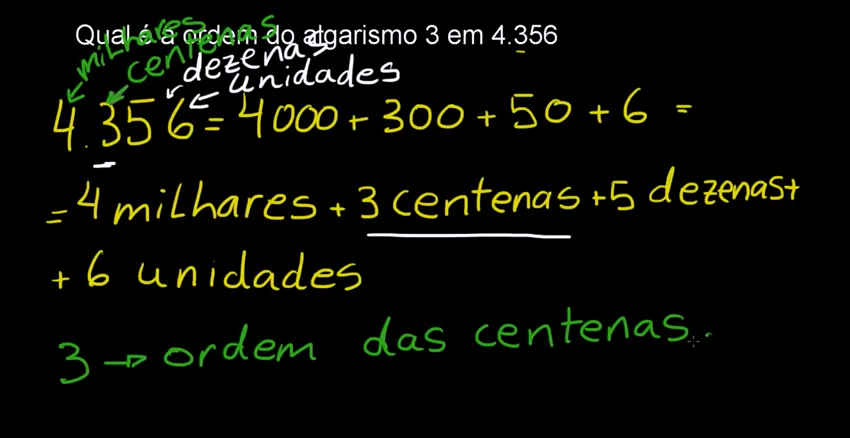 Qual é a ordem do algarismo 3 em 4.356
milhares
centenas
dezenas
unidades
4.356 = 4000 + 300 + 50 + 6 =
= 4 milhares + 3 centenas + 5 dezenas +
+ 6 unidades
3 → ordem das centenas.